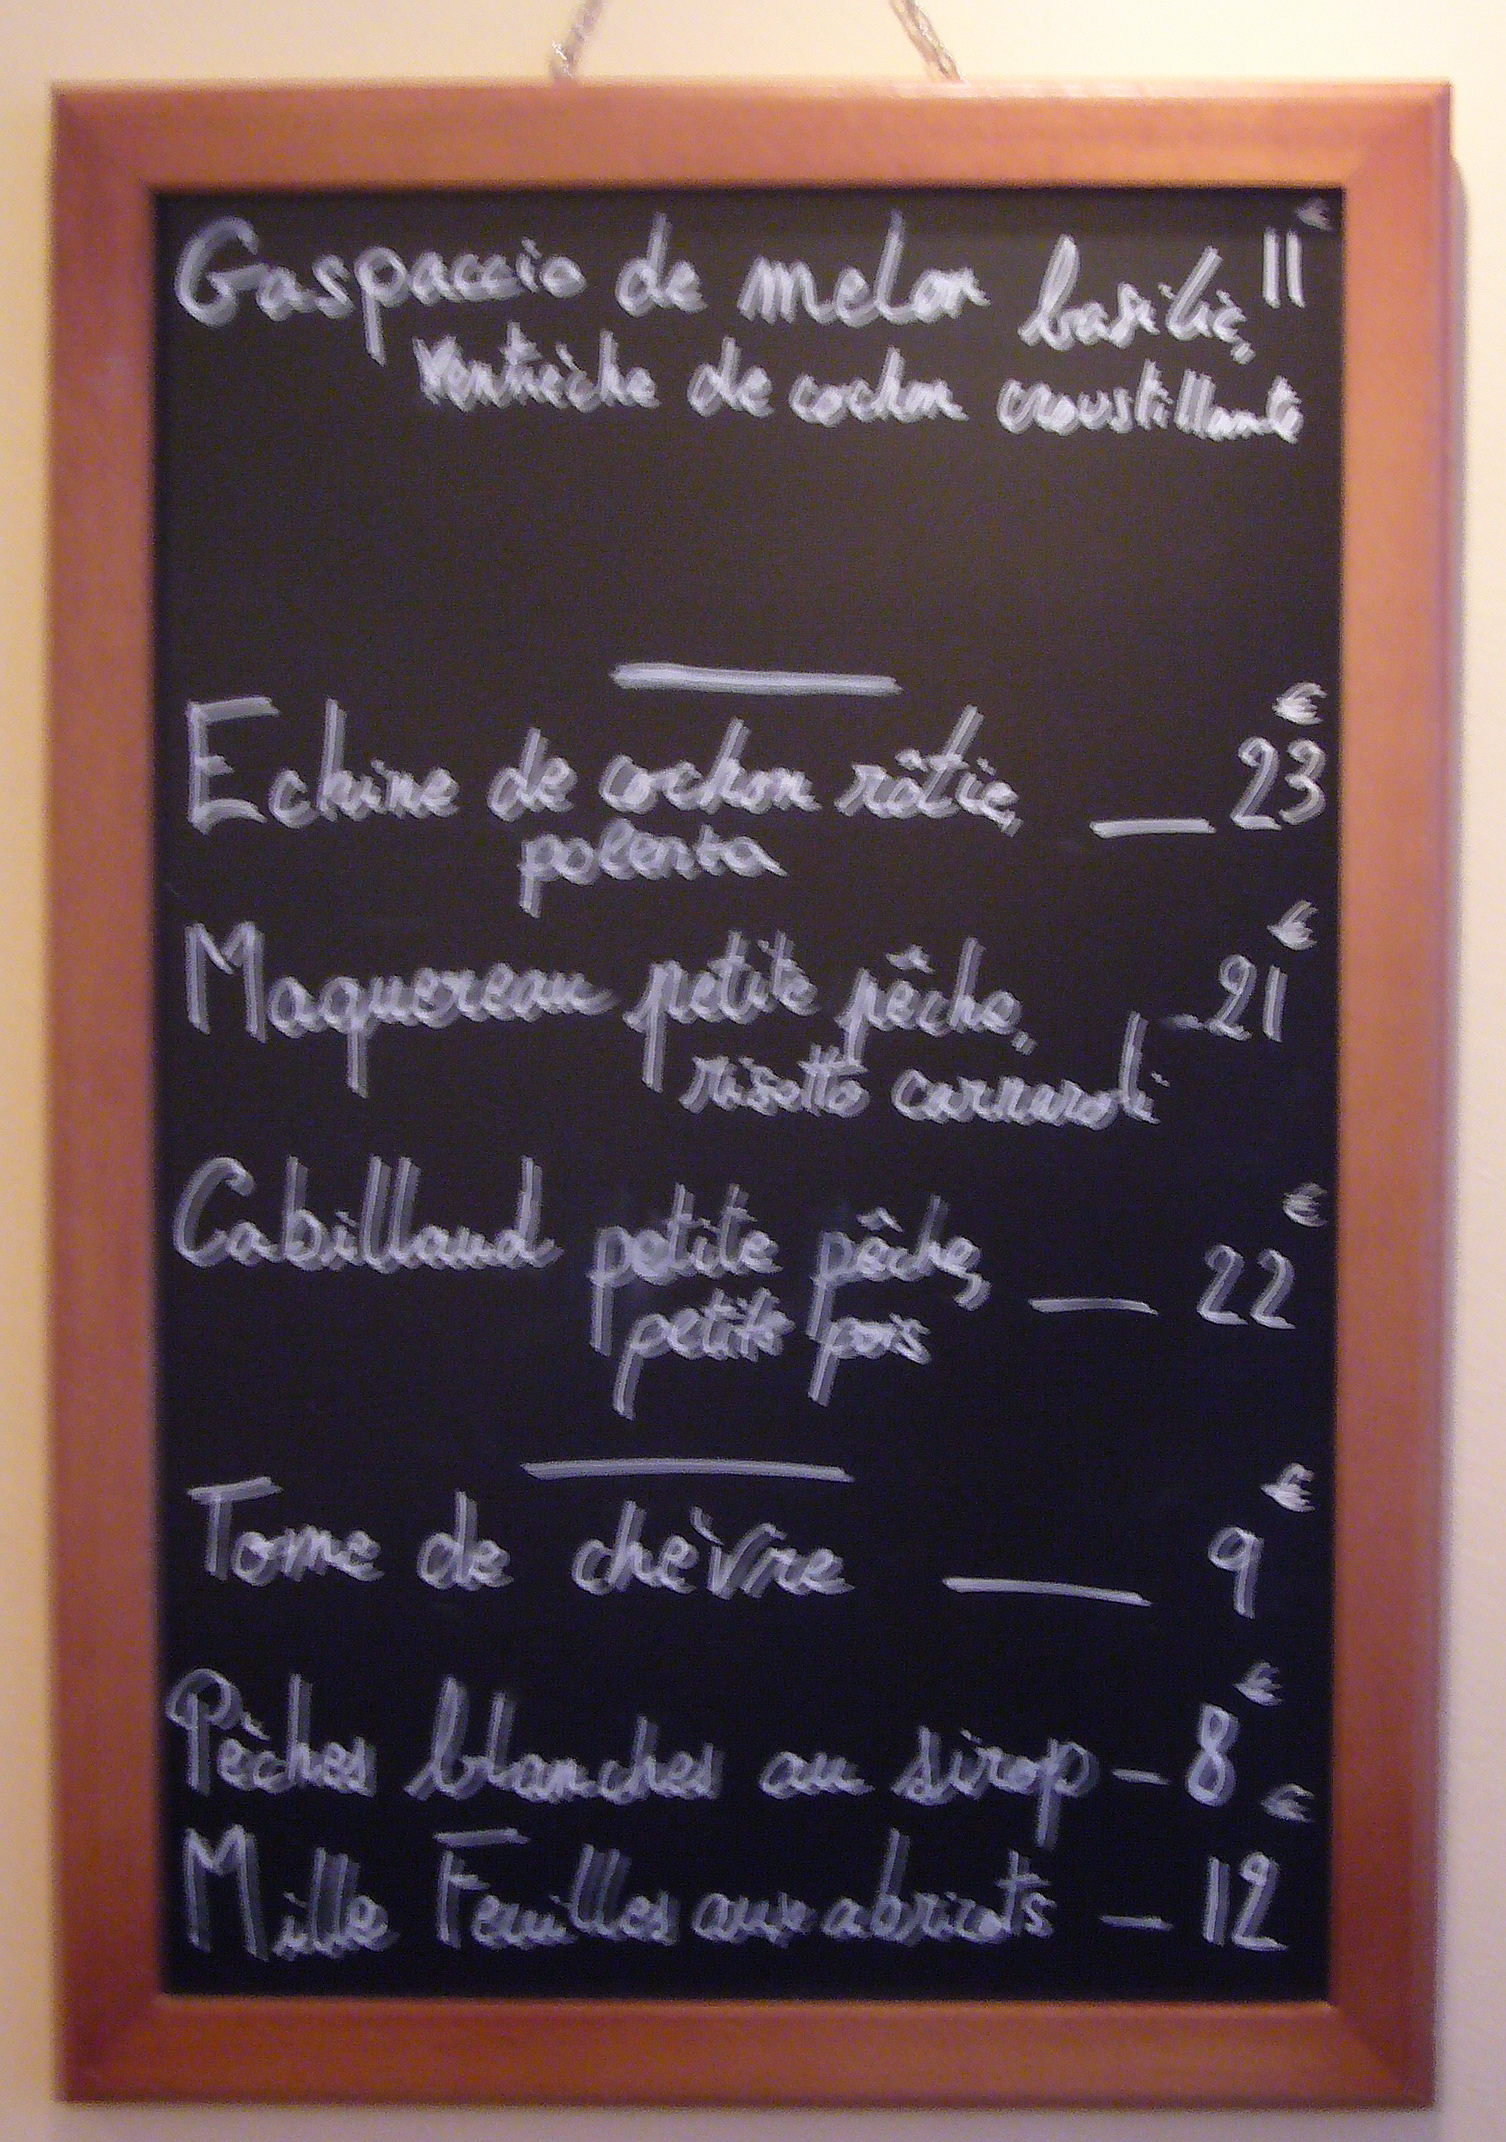 Gaspaccio de melon basilic, 11€
Ventrèche de cochon croustillante
Echine de cochon rôtie, __ 23€
polenta
Maquereau petite pêche, - 21€
risotto carnaroli
Cabillaud petite pêche, __ 22€
petits pois
Tome de chèvre __ 9€
Pêches blanches au sirop - 8€
Mille Feuilles aux abricots - 12€